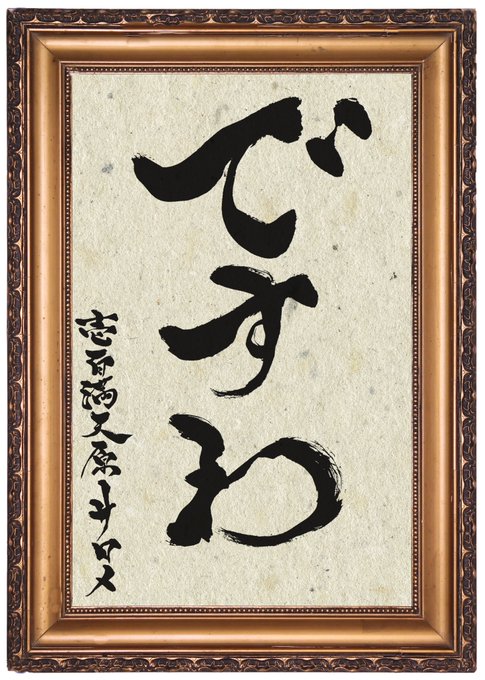 ですわ
壱百満天原サロメ